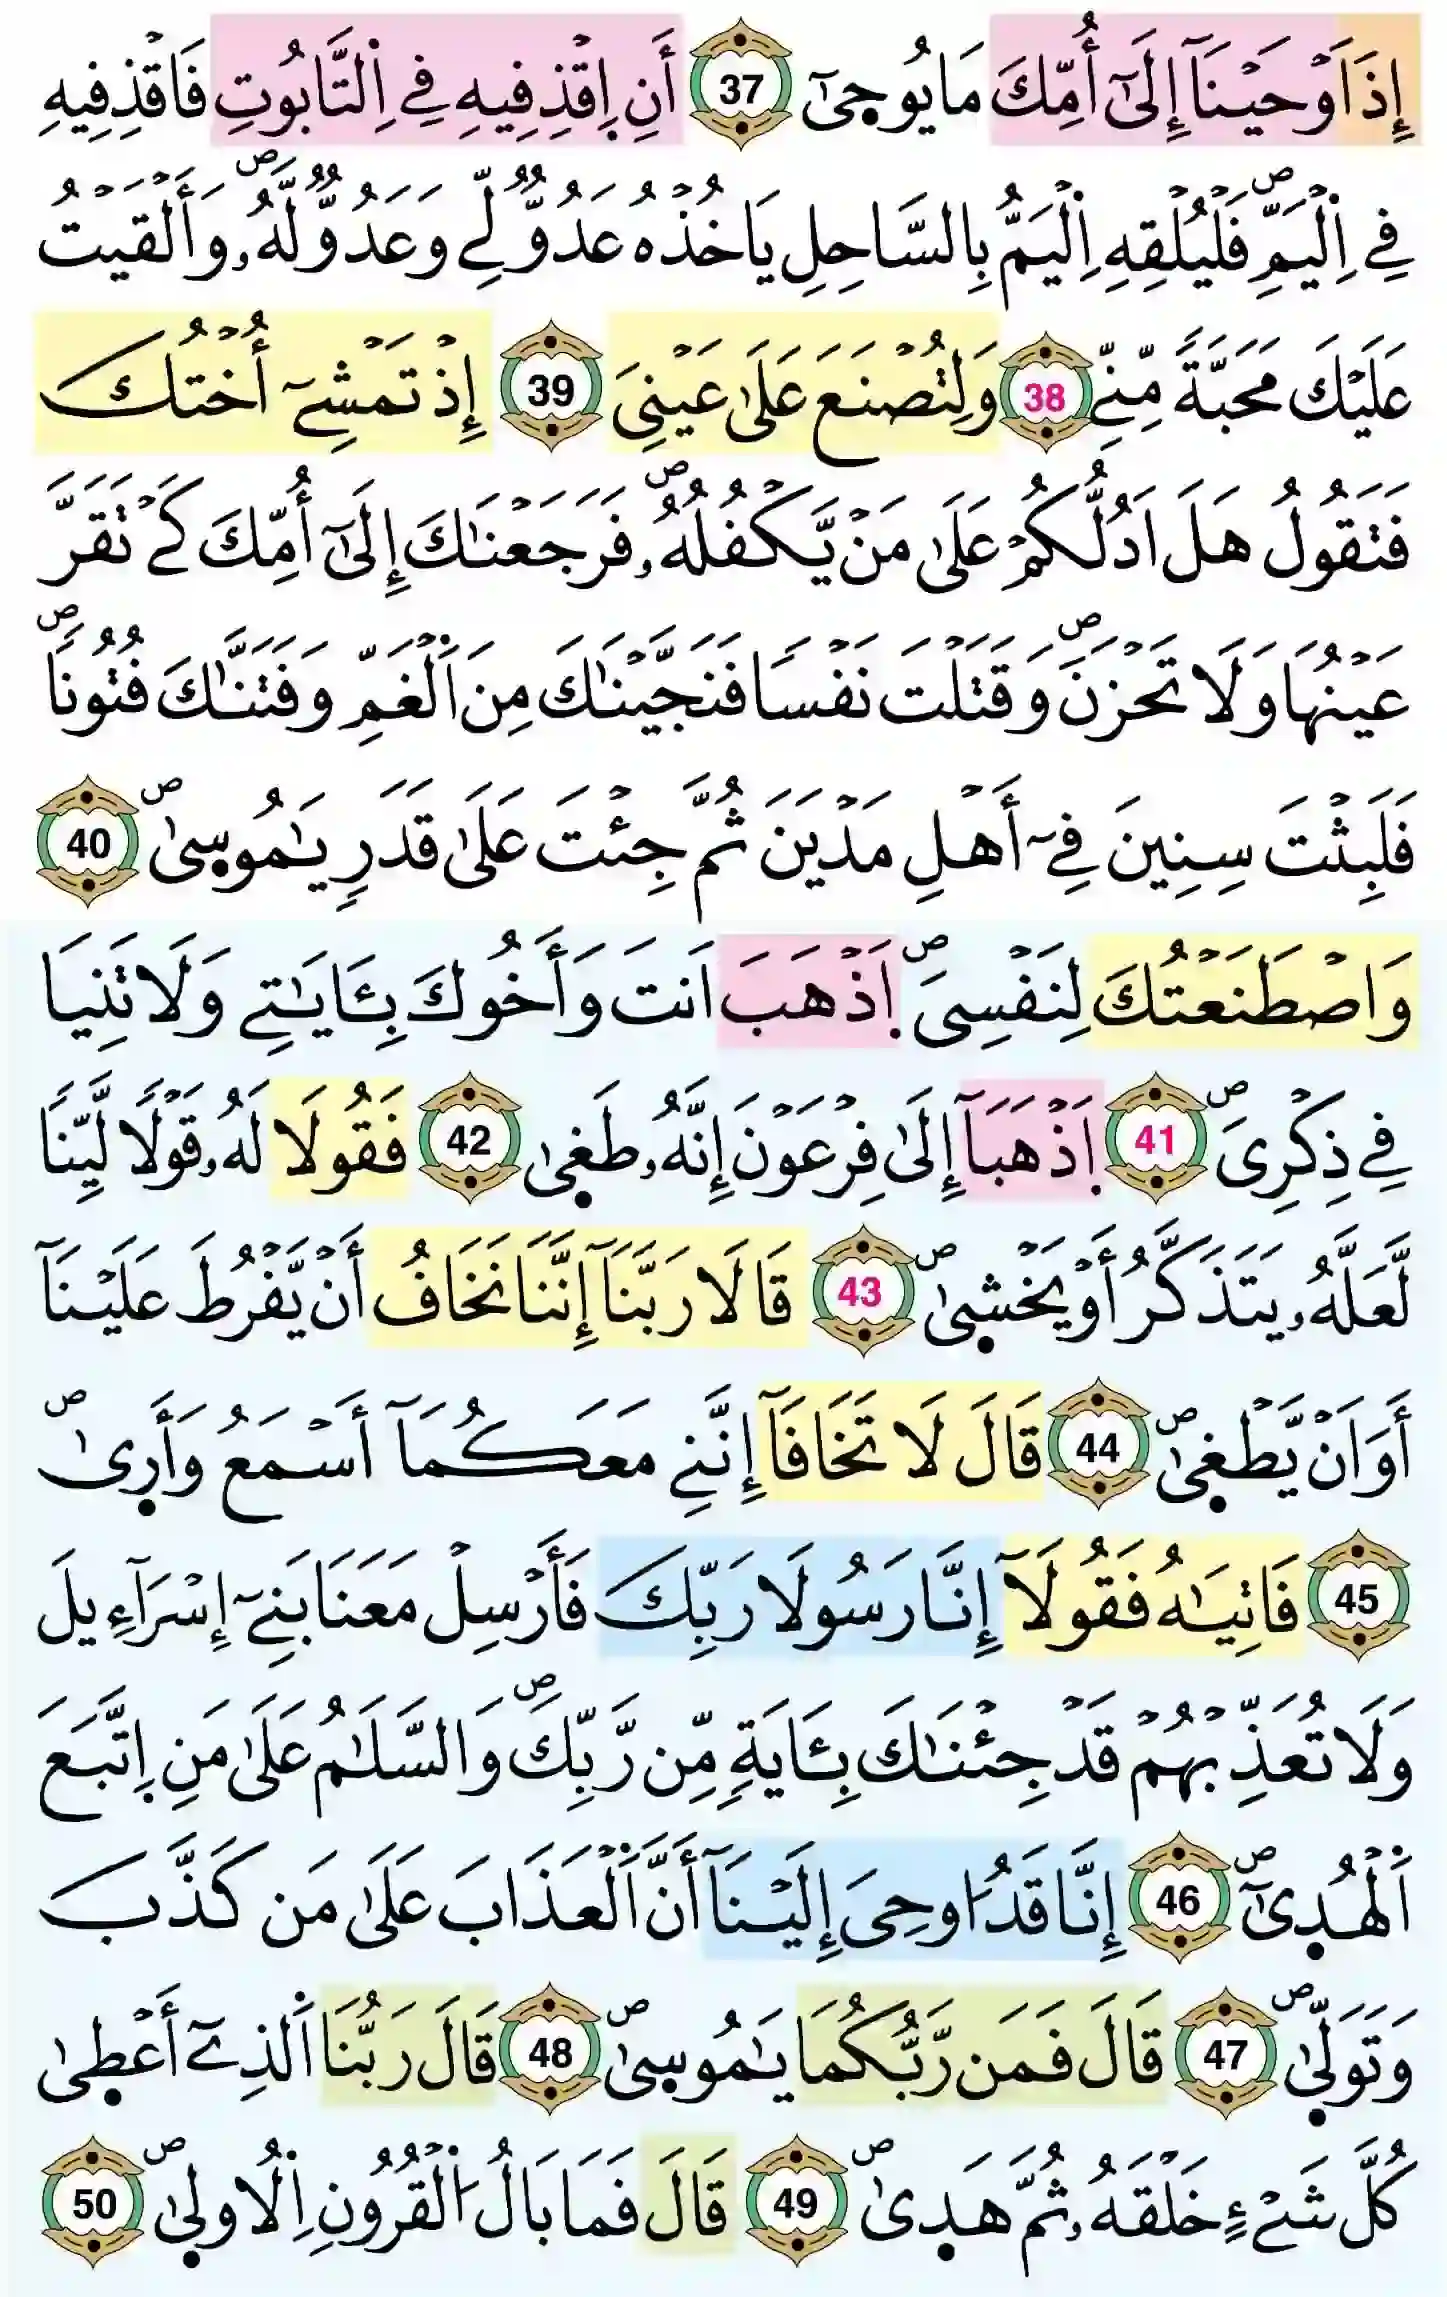 إِذَ اَوْحَيْنَآ إِلَىٰٓ أُمِّكَ مَا يُوحَىٰٓ 37 أَنِ اِقْذِفِيهِ فِے اِ۬لتَّابُوتِ فَاقْذِفِيهِ
فِے اِ۬لْيَمِّۖ فَلْيُلْقِهِ اِ۬لْيَمُّ بِالسَّاحِلِ يَاخُذْهُ عَدُوّٞ لِّے وَعَدُوّٞ لَّهُۥۖ وَأَلْقَيْتُ
عَلَيْكَ مَحَبَّةٗ مِّنِّے 38 وَلِتُصْنَعَ عَلَىٰ عَيْنِيَ 39 إِذْ تَمْشِےٓ أُخْتُكَ
فَتَقُولُ هَلَ اَدُلُّكُمْ عَلَىٰ مَنْ يَّكْفُلُهُۥۖ فَرَجَعْنَٰكَ إِلَىٰٓ أُمِّكَ كَےْ تَقَرَّ
عَيْنُهَا وَلَا تَحْزَنَۖ وَقَتَلْتَ نَفْسٗا فَنَجَّيْنَٰكَ مِنَ اَ۬لْغَمِّ وَفَتَنَّٰكَ فُتُونٗاۖ
فَلَبِثْتَ سِنِينَ فِےٓ أَهْلِ مَدْيَنَ ثُمَّ جِئْتَ عَلَىٰ قَدَرٖ يَٰمُوسَىٰۖ 40
وَاصْطَنَعْتُكَ لِنَفْسِيَۖ اَ۪ذْهَبَ اَنتَ وَأَخُوكَ بِـَٔايَٰتِے وَلَا تَنِيَا
فِے ذِكْرِيَۖ 41 اَ۪ذْهَبَآ إِلَىٰ فِرْعَوْنَ إِنَّهُۥ طَغَىٰ 42 فَقُولَا لَهُۥ قَوْلٗا لَّيِّنٗا
لَّعَلَّهُۥ يَتَذَكَّرُ أَوْ يَخْشَىٰۖ 43 قَالَا رَبَّنَآ إِنَّنَا نَخَافُ أَنْ يَّفْرُطَ عَلَيْنَآ
أَوَ اَنْ يَّطْغَىٰۖ 44 قَالَ لَا تَخَافَآ إِنَّنِے مَعَكُمَآ أَسْمَعُ وَأَر۪ىٰۖ
45 فَاتِيَٰهُ فَقُولَآ إِنَّا رَسُولَا رَبِّكَ فَأَرْسِلْ مَعَنَا بَنِےٓ إِسْرَآءِيلَ
وَلَا تُعَذِّبْهُمْ قَدْ جِئْنَٰكَ بِـَٔايَةٖ مِّن رَّبِّكَۖ وَالسَّلَٰمُ عَلَىٰ مَنِ اِ۪تَّبَعَ
اَ۬لْهُد۪ىٰٓۖ 46 إِنَّا قَدُ ا۟وحِيَ إِلَيْنَآ أَنَّ اَ۬لْعَذَابَ عَلَىٰ مَن كَذَّبَ
وَتَوَلّ۪ىٰۖ 47 قَالَ فَمَن رَّبُّكُمَا يَٰمُوس۪ىٰۖ 48 قَالَ رَبُّنَا اَ۬لذِےٓ أَعْط۪ىٰ
كُلَّ شَےْءٍ خَلْقَهُۥ ثُمَّ هَد۪ىٰۖ 49 قَالَ فَمَا بَالُ اُ۬لْقُرُونِ اِ۬لُاول۪ىٰۖ 50